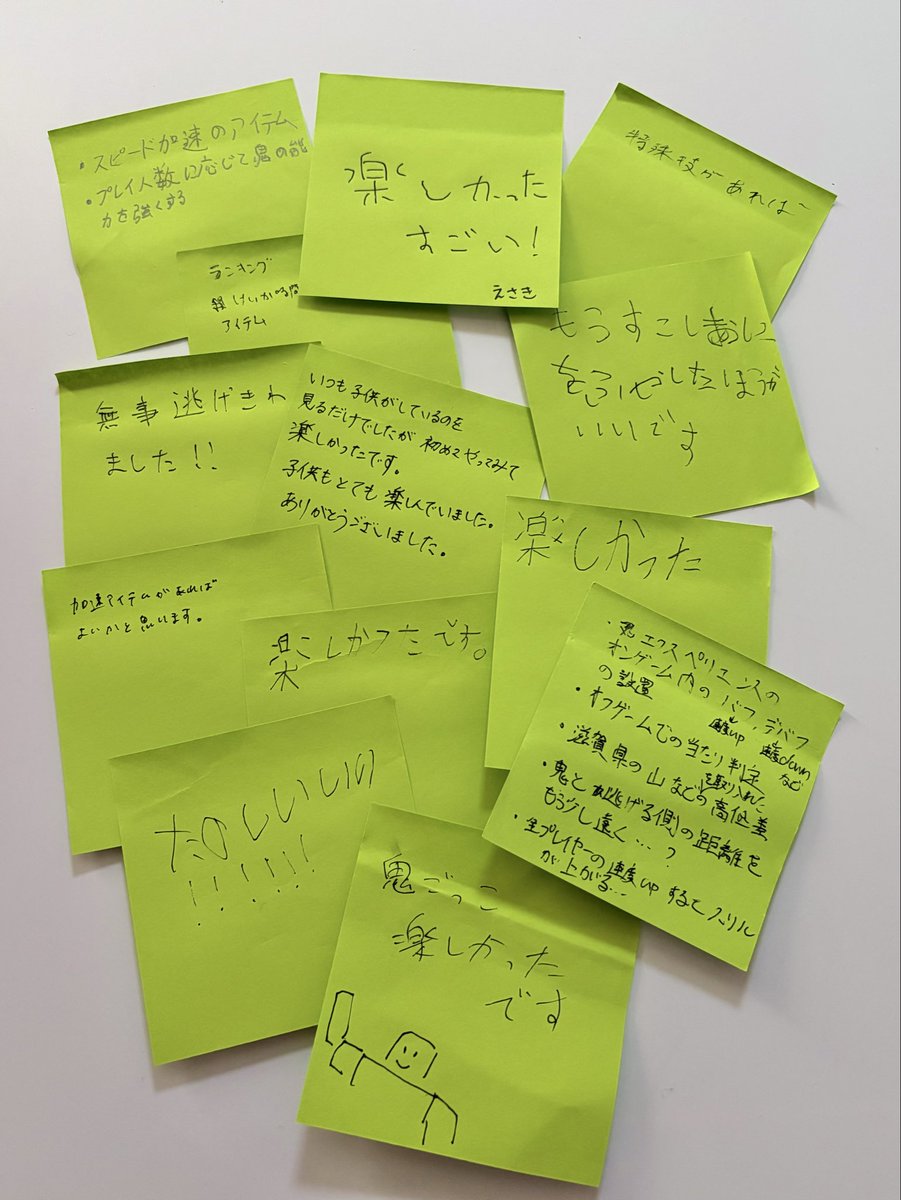 ・スピード加速のアイテム
・プレイ人数に応じて鬼の能
力を強くする
楽しかった
すごい!
えさき
特殊技があれば
ランキング
アイテム
もうすこし
をふやしたほうが
いいです
無事逃げきれ
ました!!
いつも子供がしているのを
見るだけでしたが初めてやってみて
楽しかったです。
子供もとても楽しんでいました。
ありがとうございました。
楽しかった
加速アイテムがあれば
よいかと思います。
楽しかったです。
・鬼エクスペリエンスの
オンゲーム内のバフ、デバフ
の設置 速度up 速度downなど
・オフゲームでの当たり判定
・滋賀県の山などの高低差を取り入れた
・鬼と逃げる側の距離を
もう少し遠く…?
・全プレイヤーの速度upするとスリル
が上がる…
たのしいいの
!!!!!!
鬼ごっこ
楽しかった
です